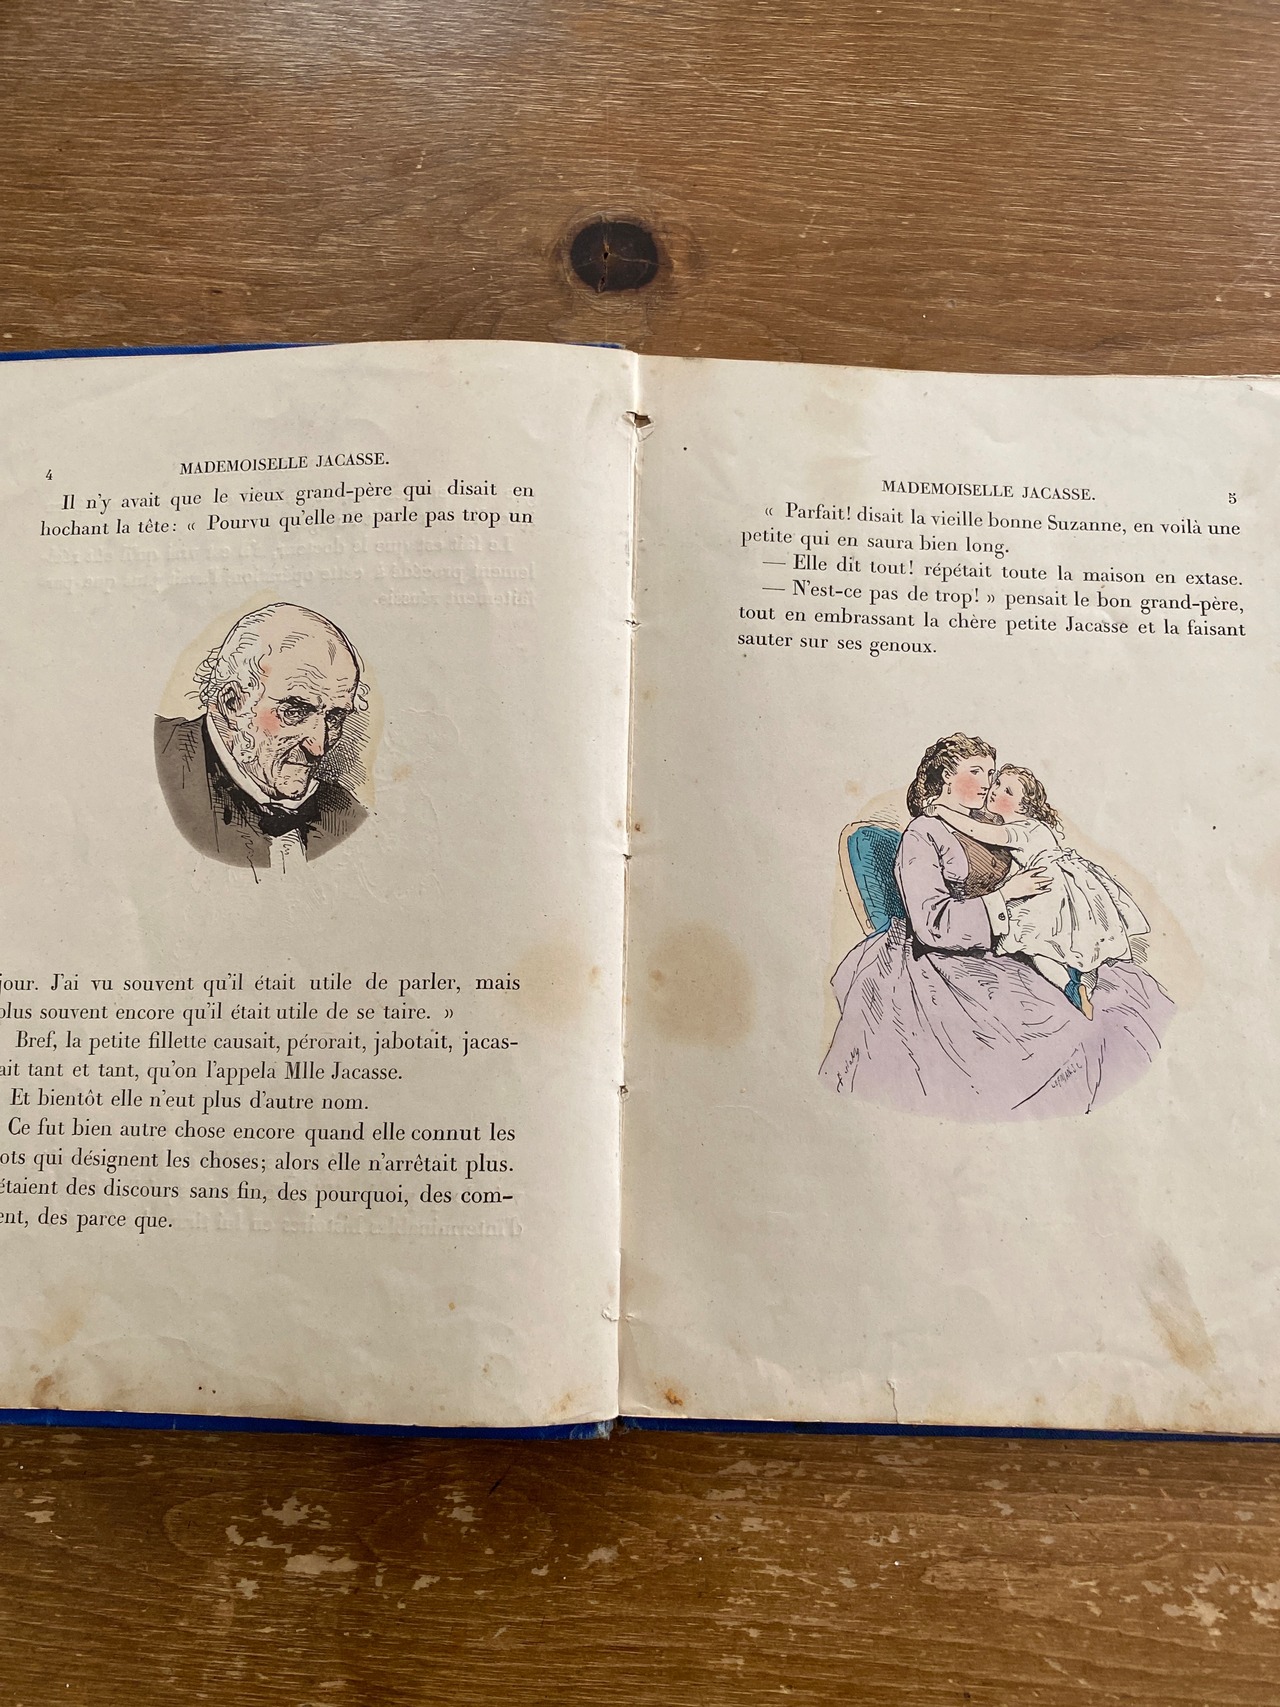 4
MADEMOISELLE JACASSE.
Il n'y avait que le vieux grand-père qui disait en
hochant la tête : « Pourvu qu'elle ne parle pas trop un
jour. J'ai vu souvent qu'il était utile de parler, mais
plus souvent encore qu'il était utile de se taire. »
Bref, la petite fillette causait, pérorait, jabotait, jacas-
ait tant et tant, qu'on l'appela Mlle Jacasse.
Et bientôt elle n'eut plus d'autre nom.
Ce fut bien autre chose encore quand elle connut les
ots qui désignent les choses; alors elle n'arrêtait plus.
étaient des discours sans fin, des pourquoi, des com-
ent, des parce que.
MADEMOISELLE JACASSE.
5
« Parfait! disait la vieille bonne Suzanne, en voilà une
petite qui en saura bien long.
— Elle dit tout! répétait toute la maison en extase.
— N'est-ce pas de trop! » pensait le bon grand-père,
tout en embrassant la chère petite Jacasse et la faisant
sauter sur ses genoux.